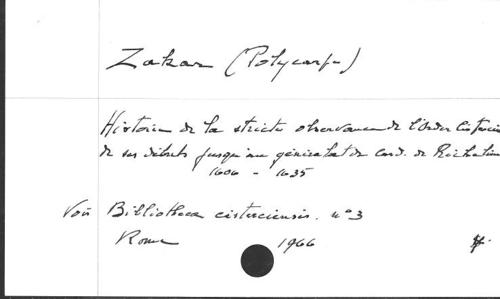 Zakar (Polycarpe)
Histoire de la stricte observance de l'Ordre Cistercien
de ses débuts jusqu'au généralat du card. de Richelieu
1606 - 1635
Voir Bibliotheca cisterciensis. n° 3
Rome 1966